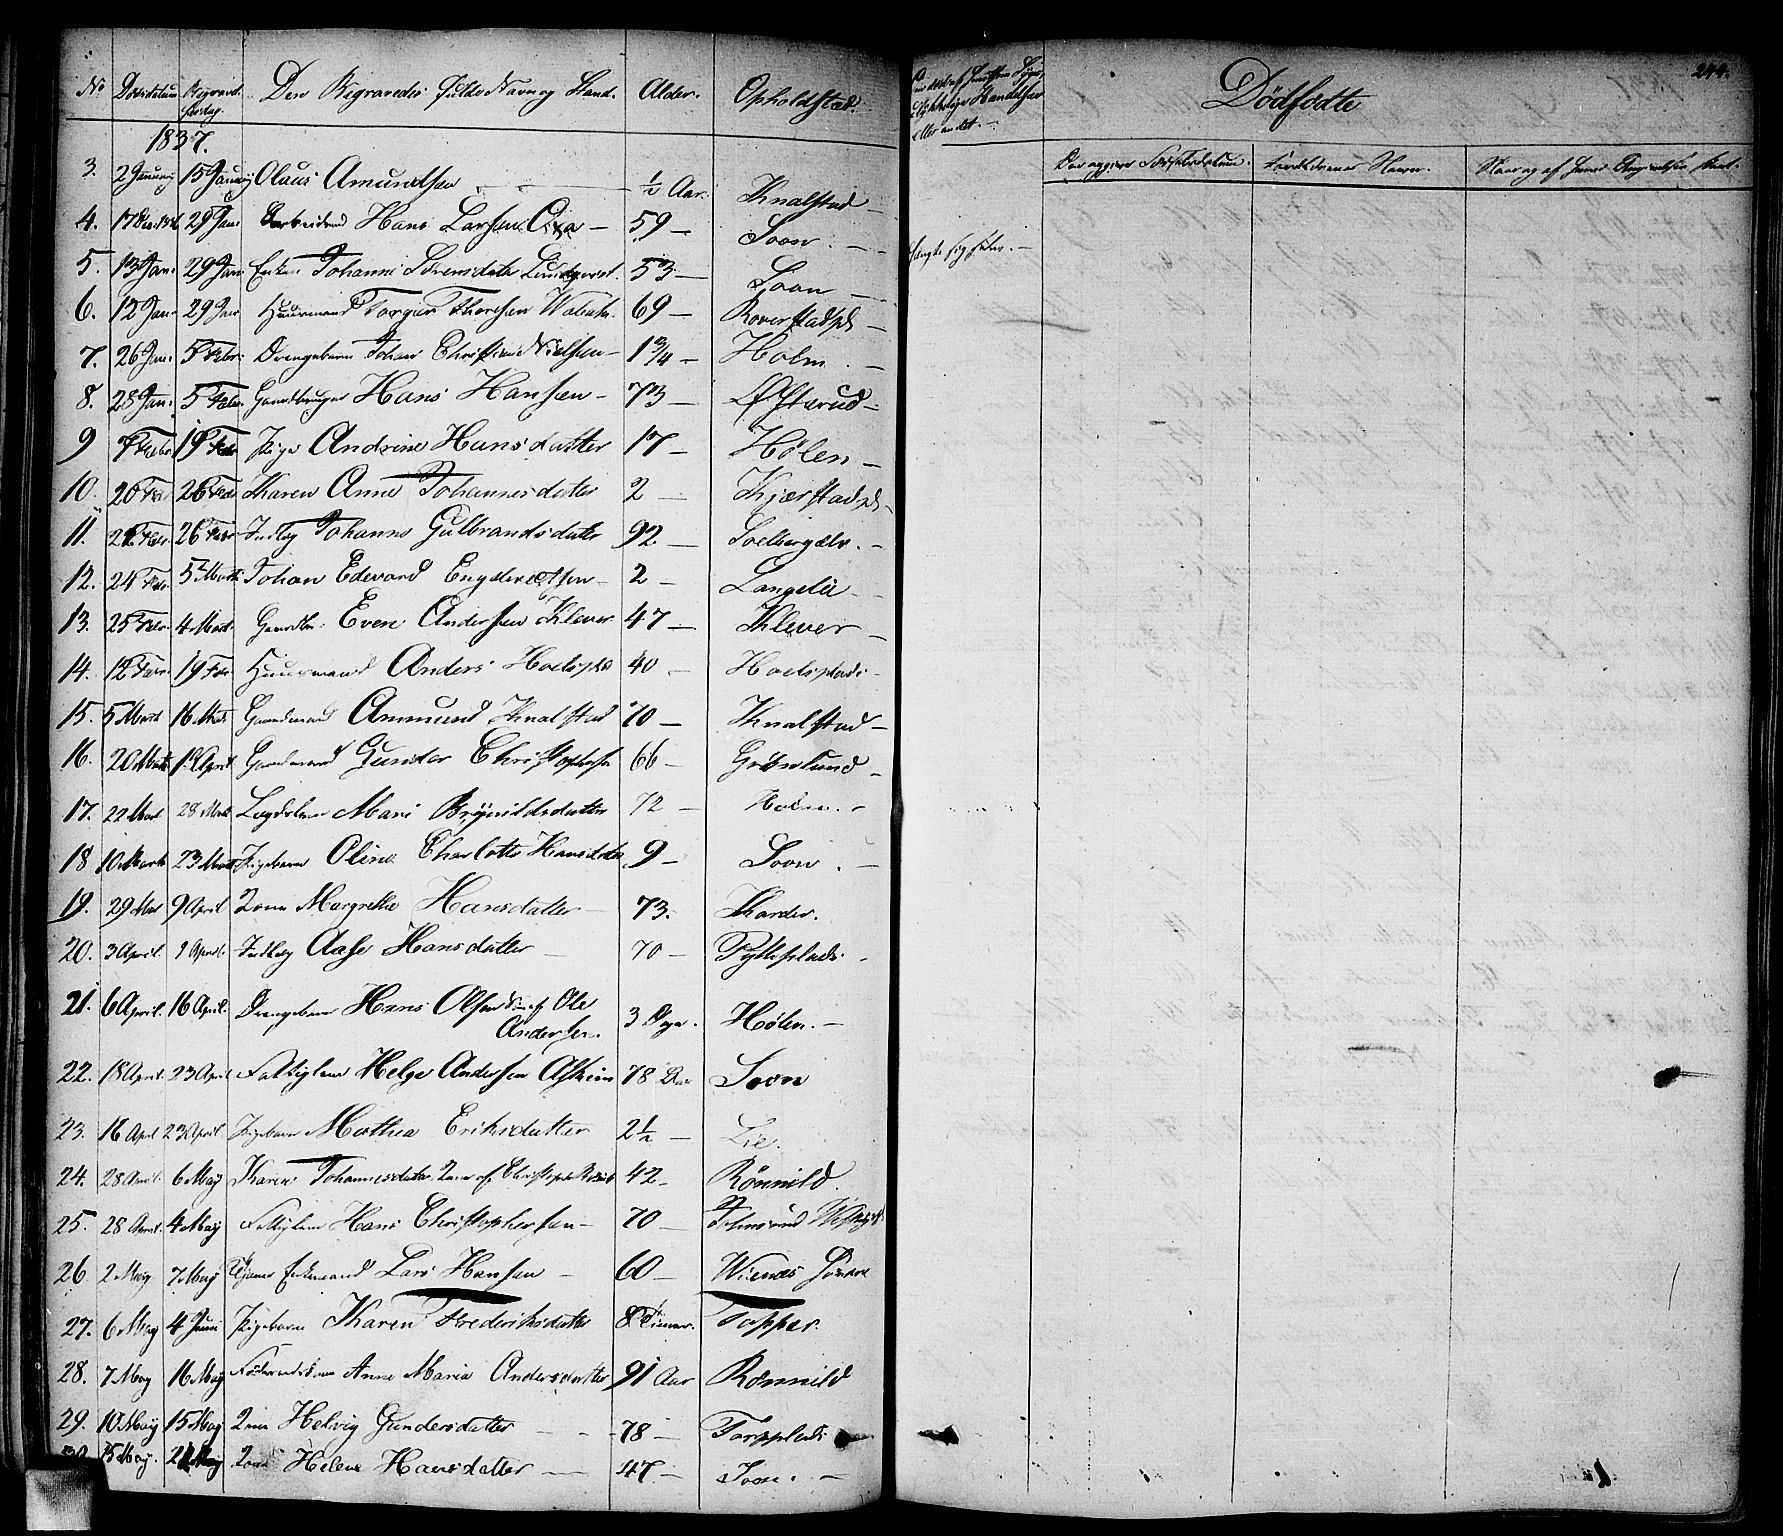 No Dødsdatum Begravelsesdag Den Begravedes fulde Navn og Stand. Alder. Opholdsted.
1837.
3. 2 Januarij 15 Januarij Olaus Amundsen ½ Aar. Knalstad
4. 17 Dec 1836 29 Jan: Hans Larsen 59 Soon
5. 13 Jan: 29 Jan Enken Johanne Sørensdatter Lundqvist. 53 Soon
6. 12 Jan 29 Jan Huusmand Torger Thoresen 69 Roverstadpl
7. 26 Jan: 5 Febr: Drengebarn Johan Christian Nielsen 1 3/4 Holm
8. 28 Jan: 5 Febr. Gaardbruger Hans Hansen 73 Østerud
9 7 Febr 19 Febr Pige Andrine Hansdatter 17 Hølen
10. 20 Fe 26 Febr Karen Anne Johannesdatter 2 Kjærstadpl
11. 21. Febr. 26 Febr Indlag Johanne Gulbrandsdatter 92 Solbergælv.
12. 24 Febr 5 Marts Johan Edevard Engebretsen 2 Langelii
13. 25 Febr. 4 Mart. Gaardbr: Even Andersen Klever 47 Klever
14. 12 Febr. 19 Febr Huusmand Anders Hoelspl 40 Hoelsplads
15. 5 Marts 16 Marts Gaardmand Ammund Knalstad 70 Knalstad
16. 20 Marts 1 April Gaardmand Gunder Christophersen 66 Grønlund
17. 22 Mart 28 Marts Lægdslem Mari Brynildsdatter 72 Holm
18 10 Marts 23 Marts Pigebarn Oline Charlotte Hansdatter 9 Soon
19. 29 Mar 9 April Kone Margrethe Hansdatter 73. Karder.
20. 3 April. 9 April. Indlag Aase Hansdatter 70 Pytteplads
21. 6 April. 16 April. Drengebarn Hans Olsen Søn af Ole
Andersen. 3 Dage. Hølen.
22. 18 April. 23 April Fattiglem Helge Andersen Askeim 78 Aar Soon
23. 16 April 23 April Pigebarn Mathea Eriksdatter 2½ Lie
24. 28 April. 6 May Karen Johannesdatter Kone af Christopher 42 Rönnild.
25. 28 April. 4 May Fattiglem Hans Christophersen 70
26 2 May 7 May Enkemand Lars Hansen 60 Wienæs Søndre
27. 6 May 4 Juni Pigebarn Karen Frederiksdatter 8 Timer. Topper.
28. 7 May 16 May Anne Maria Andersdatter 91 Aar Rönnild
29. 10 May 15 May Kone Helvig Gundersdatter 78 Torpplads
30. 15 May. 21 May Kone Helene Hansdatter 47 Soon.
244.
eller andet.
Dödfödte
Forældrenes Navne.
hængte sig selv.